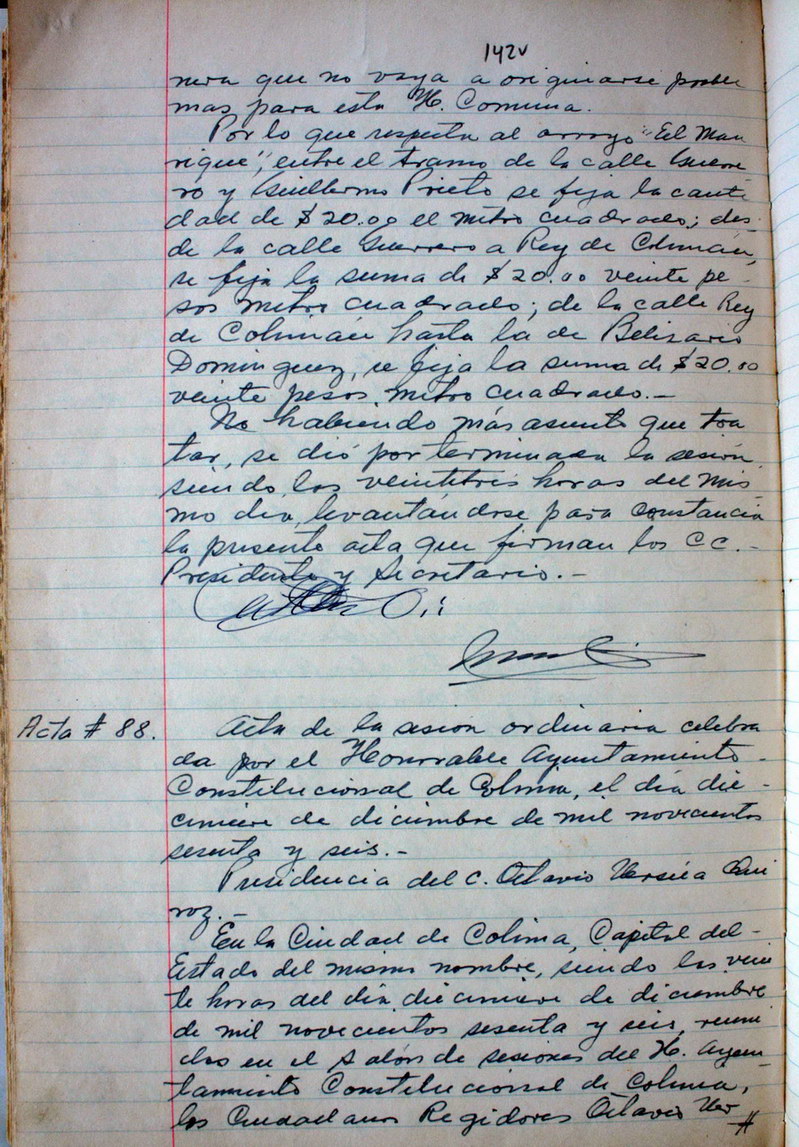 142v
nera que no vaya a originarse proble
mas para esta H. Comuna.
Por lo que respecta al arroyo "El Man
rique", entre el tramo de la calle Guerre
ro y Guillermo Prieto se fija la canti
dad de $20.00 el metro cuadrado; des-
de la calle Guerrero a Rey de Colimán,
se fija la suma de $20.00 veinte pe-
sos metro cuadrado; de la calle Rey
de Colimán hasta la de Belisario
Dominguez, se fija la suma de $20.00
veinte pesos metro cuadrado.-
No habiendo más asunto que tra
tar, se dió por terminada la sesión,
siendo las veintitres horas del mis-
mo dia, levantándose para constancia
la presente acta que firman los CC.-
Presidente y Secretario.-
Acta # 88.
Acta de la sesion ordinaria celebra
da por el Honorable Ayuntamiento-
Constitucional de Colima, el día die-
cinueve de diciembre de mil novecientos
sesenta y seis.-
Presidencia del C. Octavio Urzúa Qui
roz.-
En la Ciudad de Colima, Capital del-
Estado del mismo nombre, siendo las vein
te horas del día diecinueve de diciembre
de mil novecientos sesenta y seis, reuni
dos en el Salón de sesiones del H. Ayun-
tamiento Constitucional de Colima,
los Ciudadanos Regidores Octavio Ur-
#